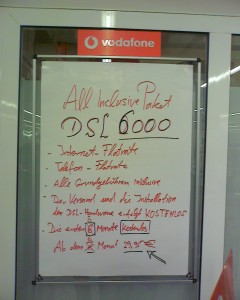 vodafone
All Inclusive Paket
DSL 6000
- Internet-Flatrate
- Telefon-Flatrate
- Alle Grundgebühren inklusive
- Der Versand und die Installation
der DSL-Hardware erfolgt KOSTENLOS
- Die ersten Monate Kostenlos
Ab dem Monat 29,95 €